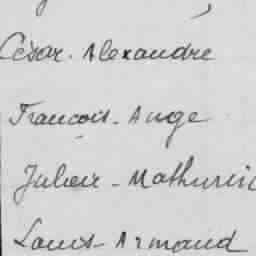 César-Alexandre
François-Ange
Julien-Mathurin
Louis-Armand